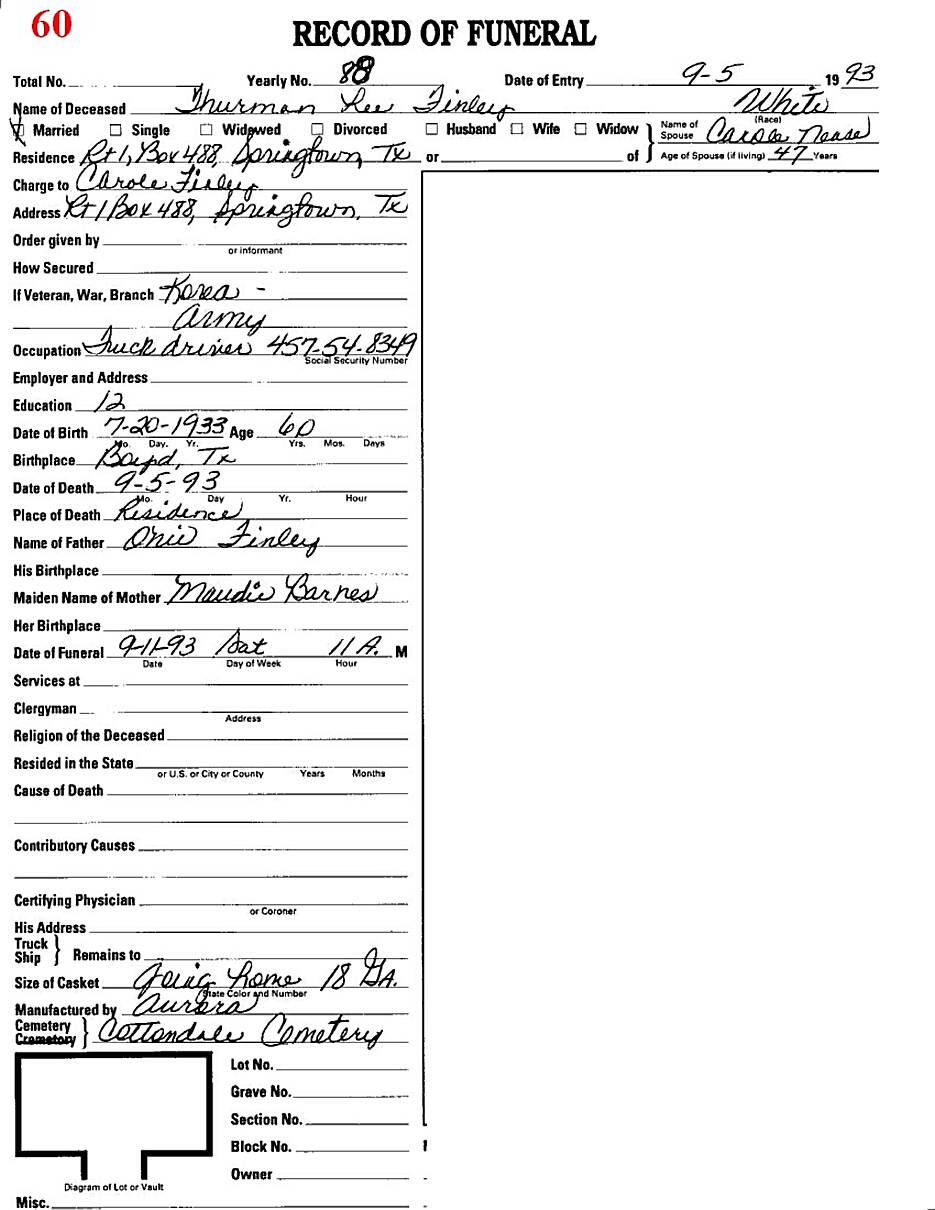 60
RECORD OF FUNERAL
Total No. Yearly No. 88 Date of Entry 9-5 19 93
Name of Deceased Thurman Lee Finley White
(Race)
Married Single Widowed Divorced Husband Wife Widow Name of Spouse Carole Nease
Residence Rt 1, Box 488, Springtown, Tx or of Age of Spouse (if living) 47 Years
Charge to Carole Finley
Address Rt 1 Box 488, Springtown, Tx
Order given by
or informant
How Secured
If Veteran, War, Branch Korea -
Army
Occupation Truck driver 457-54-8349
Social Security Number
Employer and Address
Education 12
Date of Birth 7-20-1933 Age 60
Mo. Day. Yr. Yrs. Mos. Days
Birthplace Boyd, Tx
Date of Death 9-5-93
Mo. Day Yr. Hour
Place of Death Residence
Name of Father Finley
His Birthplace
Maiden Name of Mother Maudie Barnes
Her Birthplace
Date of Funeral 9-11-93 Sat 11 A. M
Date Day of Week Hour
Services at
Clergyman
Address
Religion of the Deceased
Resided in the State
or U.S. or City or County Years Months
Cause of Death
Contributory Causes
Certifying Physician
or Coroner
His Address
Truck
Ship Remains to
Size of Casket Going home 18 GA.
State Color and Number
Manufactured by Aurora
Cemetery
Crematory Cottondale Cemetery
Lot No.
Grave No.
Section No.
Block No.
Owner
Diagram of Lot or Vault
Misc.